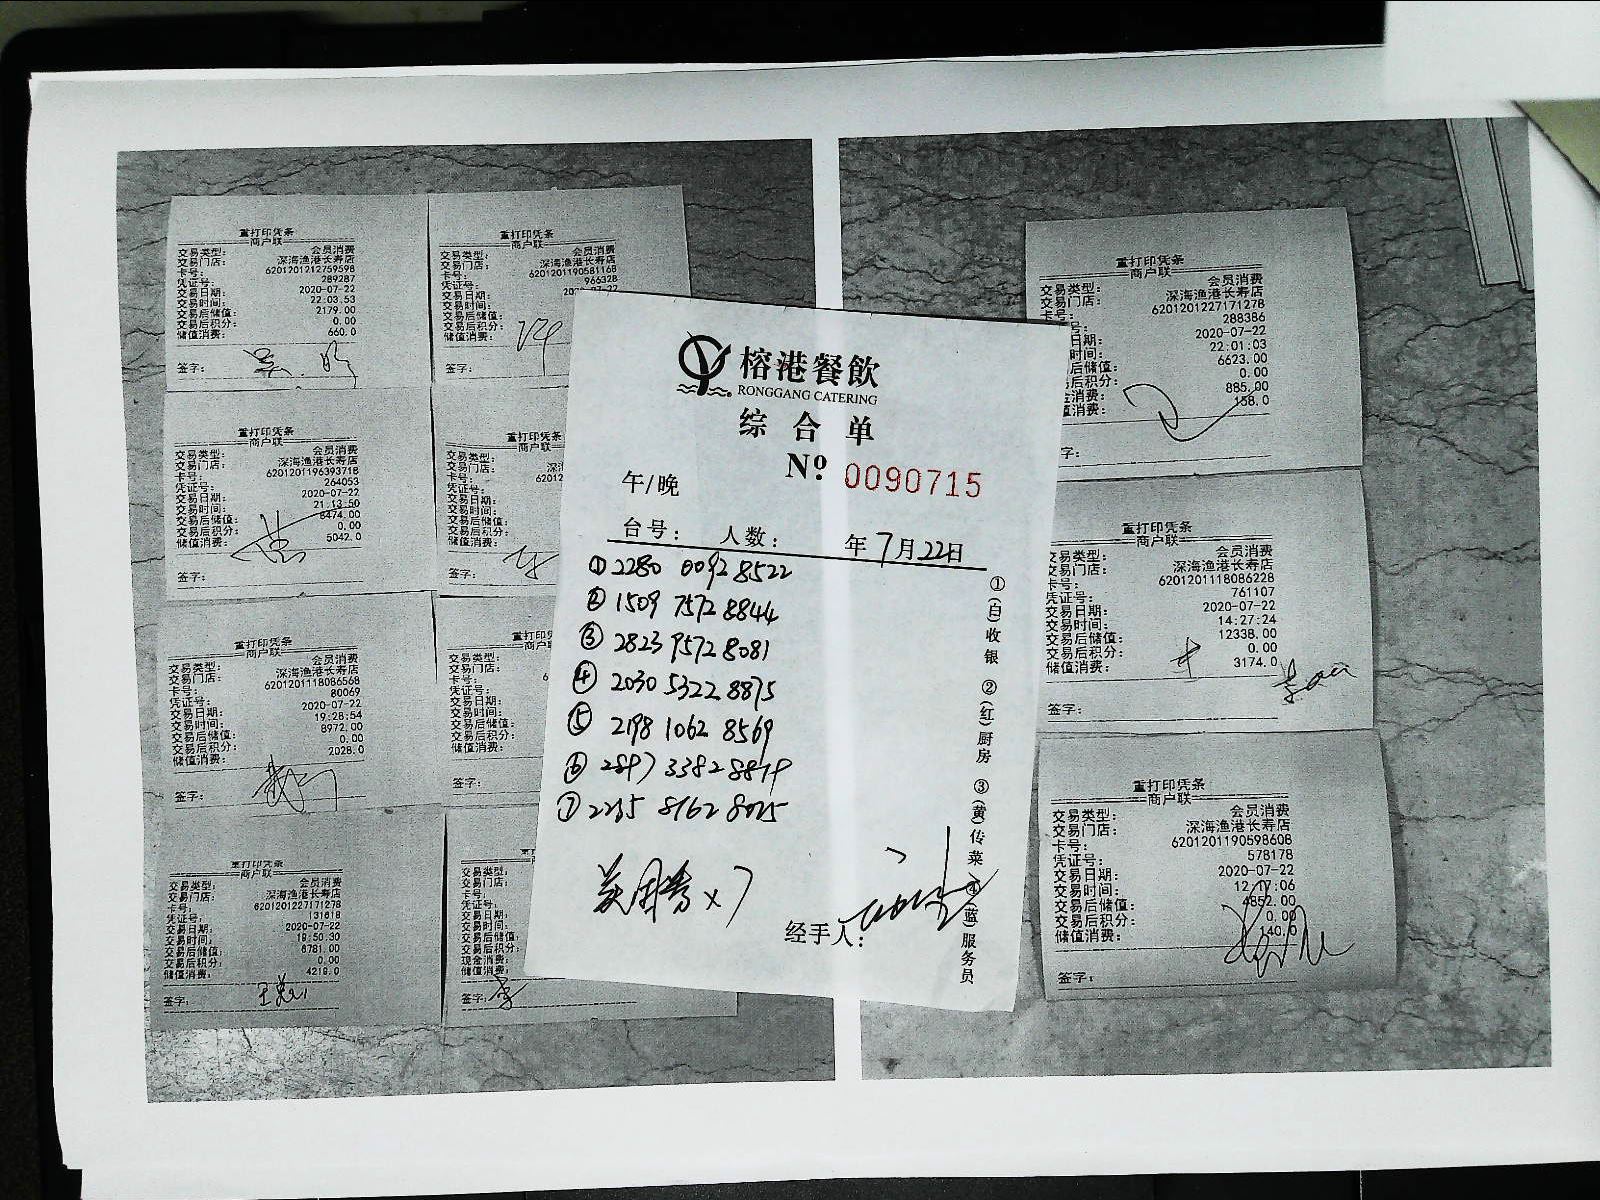 重打印凭条
商户联
交易类型： 会员消费
交易门店： 深海渔港长寿店
卡号： 6201201212759598
凭证号： 289287
交易日期： 2020-07-22
交易时间： 22:03:53
交易后储值： 2179.00
交易后积分： 0.00
储值消费： 660.0
签字：
重打印凭条
商户联
交易类型： 会员消费
交易门店： 深海渔港长寿店
卡号： 6201201190581168
凭证号： 966328
交易日期：
交易时间：
交易后储值：
交易后积分：
储值消费：
签字：
重打印凭条
商户联
交易类型： 会员消费
交易门店： 深海渔港长寿店
卡号： 6201201196393718
凭证号： 264053
交易日期： 2020-07-22
交易时间： 21:13:50
交易后储值： 8474.00
交易后积分： 0.00
储值消费： 5042.0
签字：
重打印凭条
商户联
交易类型：
交易门店：
卡号：
凭证号：
交易日期：
交易时间：
交易后储值：
交易后积分：
储值消费：
签字：
重打印凭条
商户联
交易类型： 会员消费
交易门店： 深海渔港长寿店
卡号： 6201201118086568
凭证号： 80069
交易日期： 2020-07-22
交易时间： 19:28:54
交易后储值： 8972.00
交易后积分： 0.00
储值消费： 2028.0
签字：
重打印
商户联
交易类型：
交易门店：
卡号：
凭证号：
交易日期：
交易时间：
交易后储值：
交易后积分：
储值消费：
签字：
重打印凭条
商户联
交易类型： 会员消费
交易门店： 深海渔港长寿店
卡号： 6201201227171278
凭证号： 131618
交易日期： 2020-07-22
交易时间： 19:50:30
交易后储值： 6781.00
交易后积分： 0.00
储值消费： 4219.0
签字：
交易类型：
交易门店：
卡号：
凭证号：
交易日期：
交易时间：
交易后储值：
交易后积分：
现金消费：
储值消费：
签字：
榕港餐飲
RONGGANG CATERING
综合单
No 0090715
午/晚
台号： 人数： 年7月22日
① 2280 0092 8522
② 1509 7572 8844
③ 2823 9572 8081
④ 2030 5322 8875
⑤ 2198 1062 8569
⑥ 2897 3382 8819
⑦ 2235 8162 8025
×7
经手人：
①(白)收银 ②(红)厨房 ③(黄)传菜 ④(蓝)服务员
重打印凭条
商户联
交易类型： 会员消费
交易门店： 深海渔港长寿店
卡号： 6201201227171278
号： 288386
日期： 2020-07-22
时间： 22:01:03
后储值： 6623.00
后积分： 0.00
金消费： 885.00
值消费： 158.0
字：
重打印凭条
商户联
交易类型： 会员消费
交易门店： 深海渔港长寿店
卡号： 6201201118086228
凭证号： 761107
交易日期： 2020-07-22
交易时间： 14:27:24
交易后储值： 12338.00
交易后积分： 0.00
储值消费： 3174.0
签字：
重打印凭条
商户联
交易类型： 会员消费
交易门店： 深海渔港长寿店
卡号： 6201201190598608
凭证号： 578178
交易日期： 2020-07-22
交易时间： 12:17:06
交易后储值： 4852.00
交易后积分： 0.00
储值消费： 140.0
签字：